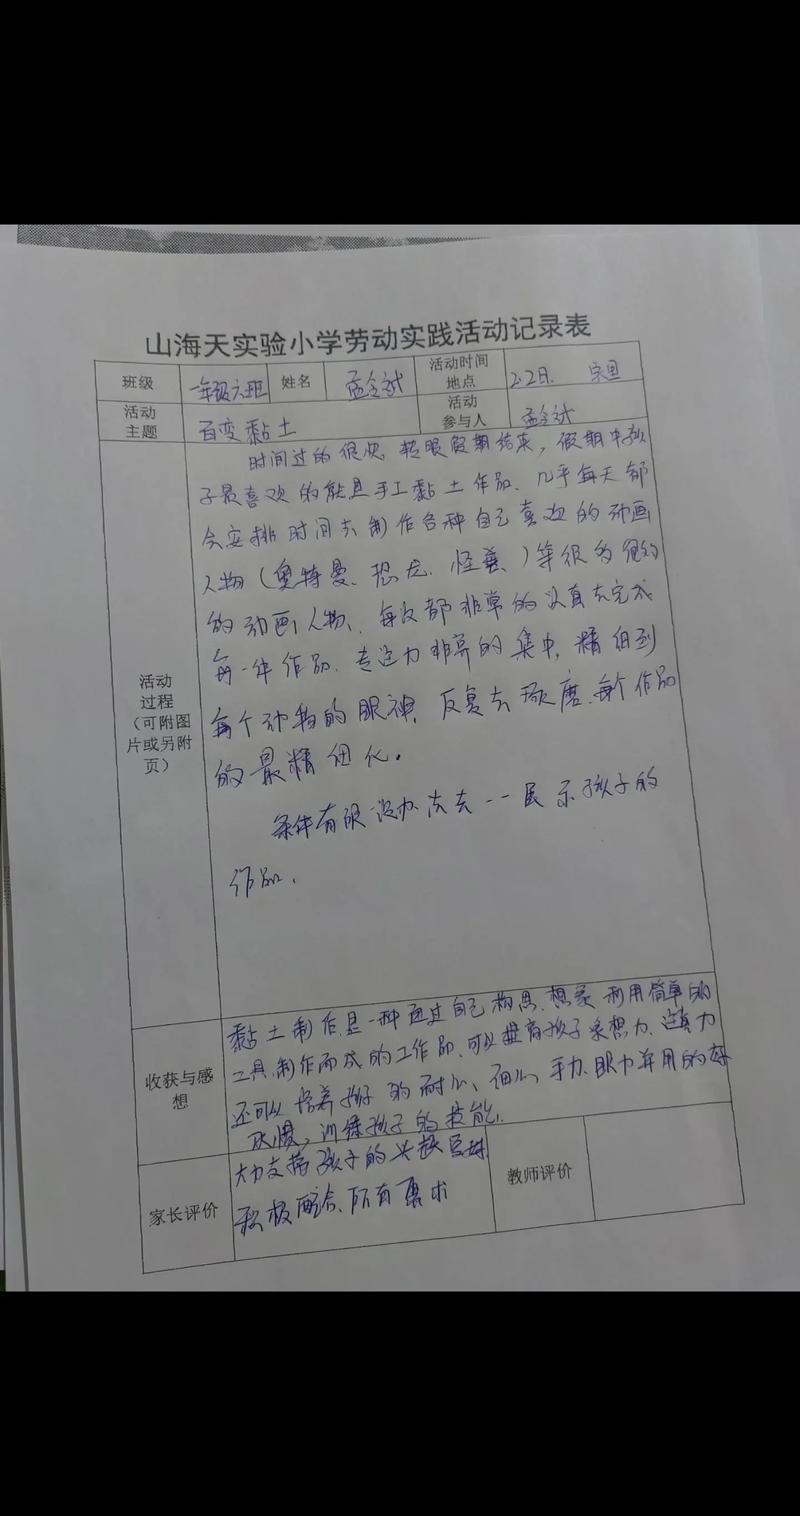 山海天实验小学劳动实践活动记录表
班级 一年级六班 姓名 孟 活动时间地点 2.2日. 家里
活动主题 百变黏土 活动参与人 孟
活动
过程
（可附图
片或另附
页）
时间过的很快，转眼假期结束，假期中孩
子最喜欢的就是手工黏土作品、几乎每天都
会安排时间去制作各种自己喜欢的动画
人物（奥特曼、恐龙、怪兽、）等很多
的动画人物、每次都非常的认真去完成
每一件作品、专注力非常的集中，精细到
每个动物的眼神，反复去琢磨、每个作品
的最精细化。
条件有限没办法去一一展示孩子的
作品、
收获与感
想
黏土制作是一种通过自己构思、想象、利用简单的
工具、制作而成的工作品、可以提高孩子 想力、力
还可以培养孩子的耐心、细心、手力、眼力并用的好
习惯，训练孩子的技能、
家长评价
大力支持孩子的兴趣
积极配合、所有要求
教师评价